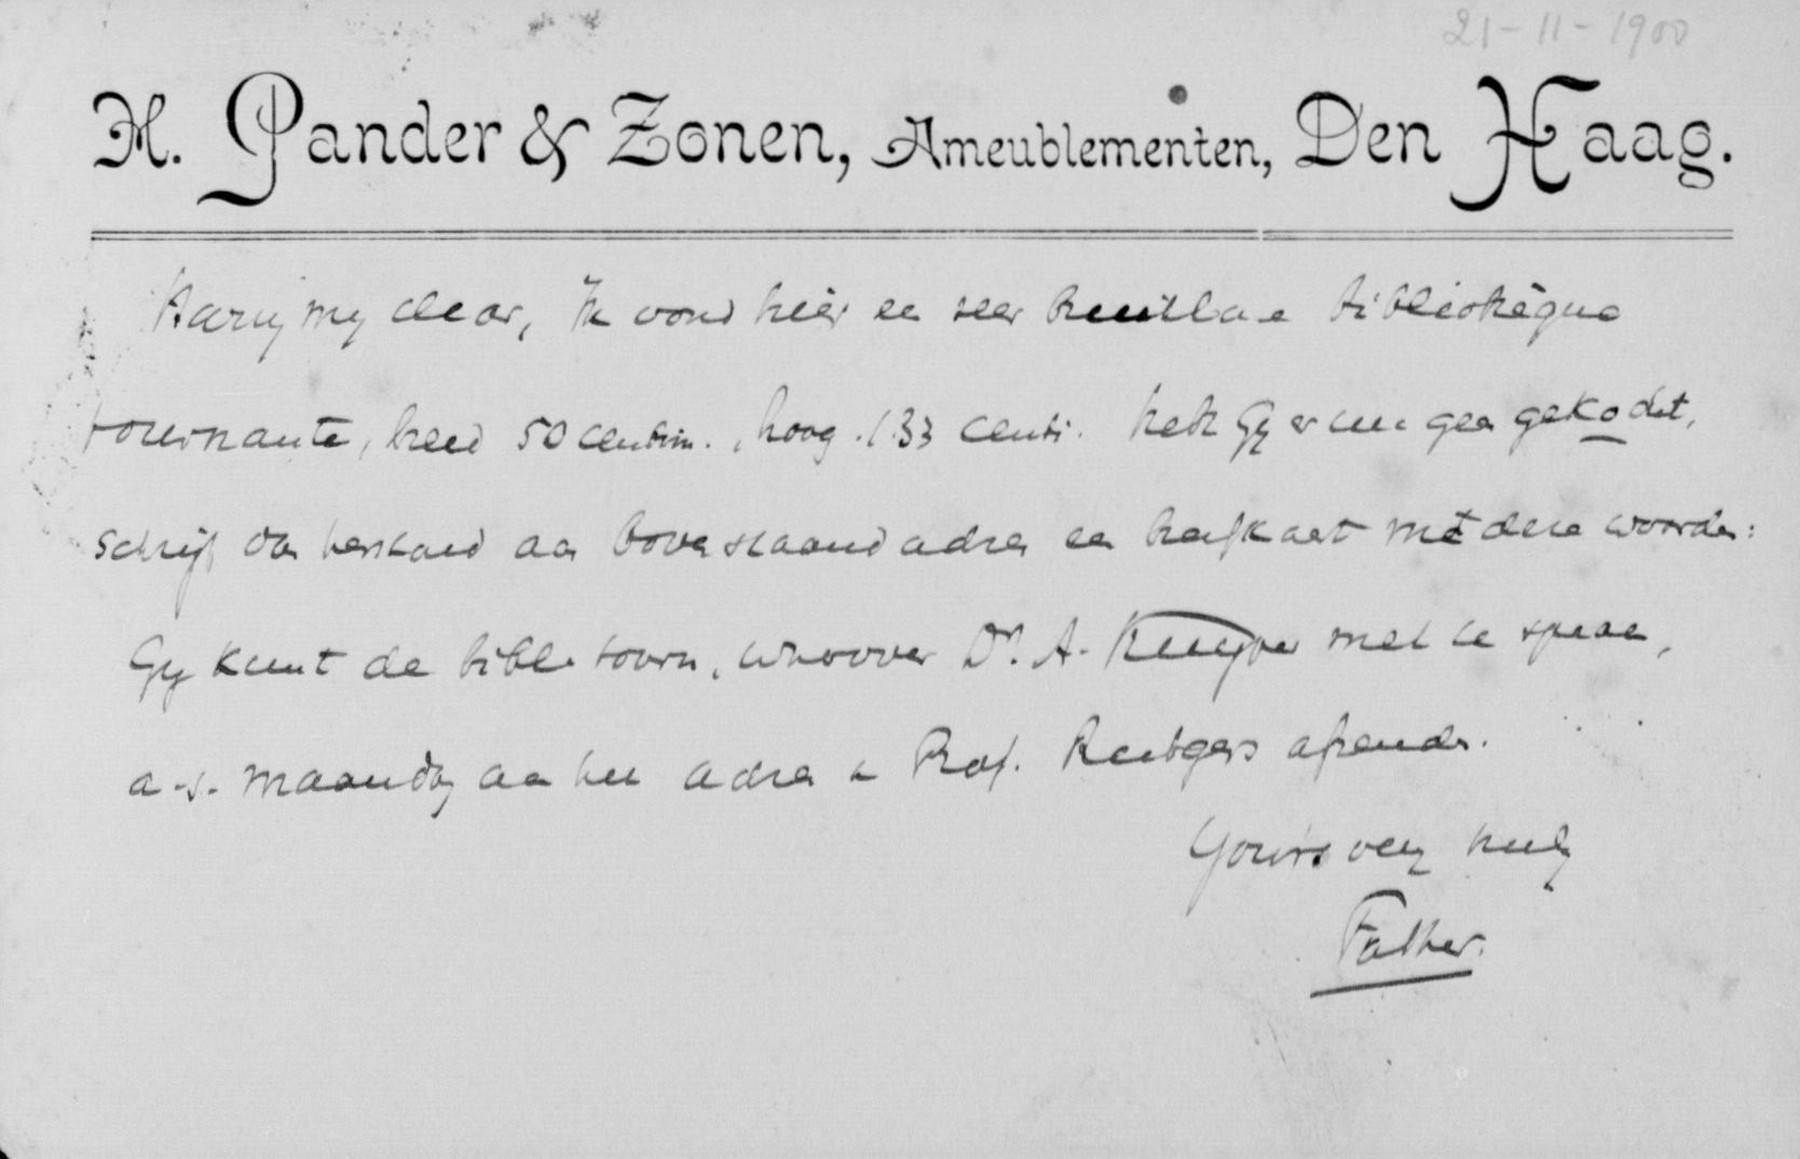 21-11-1900
H. Pander & Zonen, Ameublementen, Den Haag.
Harry my dear, Ik vond hier een zeer bruikbare bibliothèque
tournante, breed 50 centim., hoog 1.33 centi. Hebt Gij er nu geen gekocht,
schrijf dan aan bovenstaand adres een briefkaart met deze woorden:
Gij kunt de bibl. tourn., waarover Dr. A. Kuyper met U sprak,
a.s. Maandag aan het adres v. Prof. Rutgers afzenden.
Yours very truly
Father.